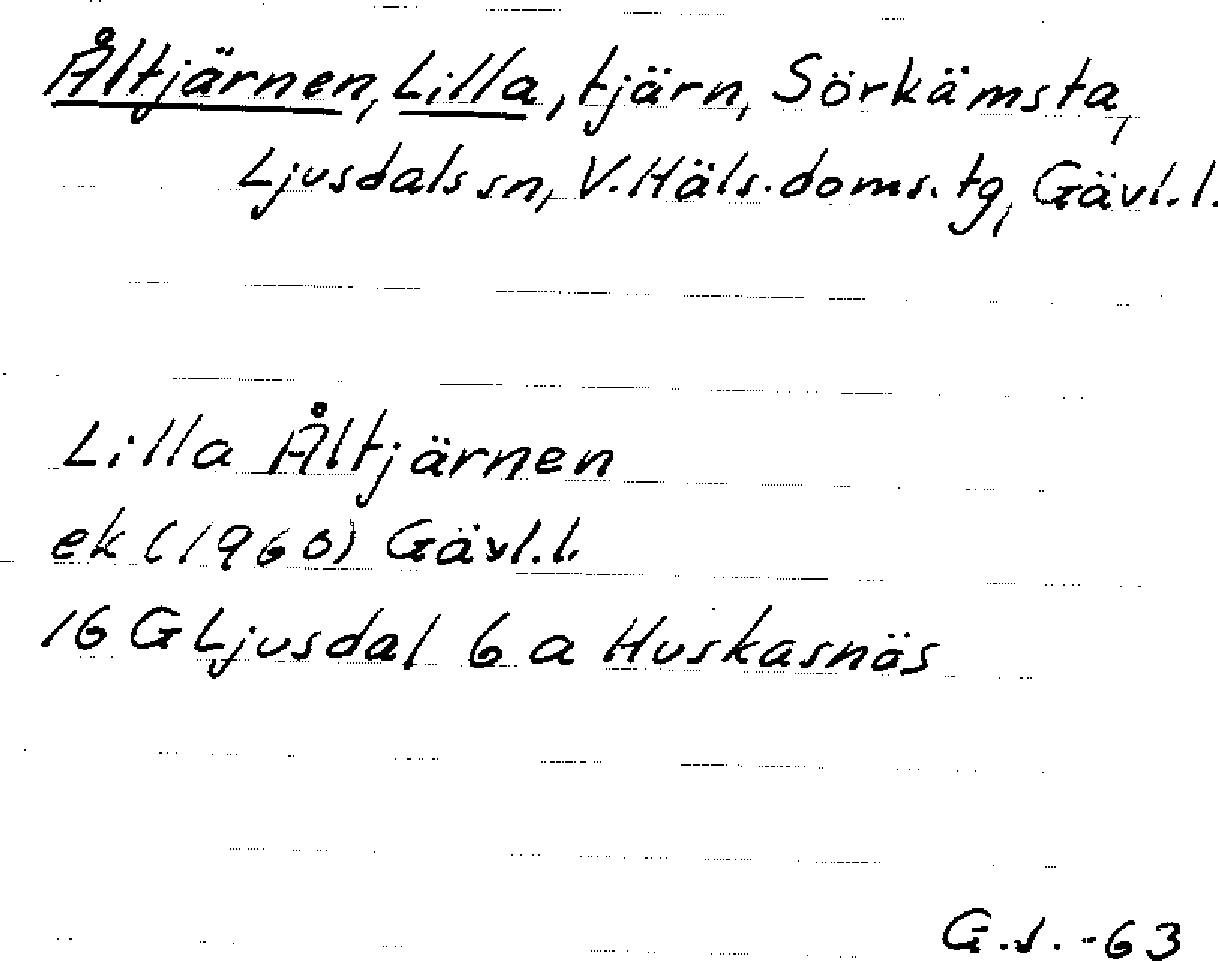 Åltjärnen, Lilla, tjärn, Sörkämsta,
Ljusdals sn, V. Häls. doms. tg, Gävl. l.
Lilla Åltjärnen
ek (1960) Gävl. l.
16 G Ljusdal 6 a Huskasnäs
G.S. -63